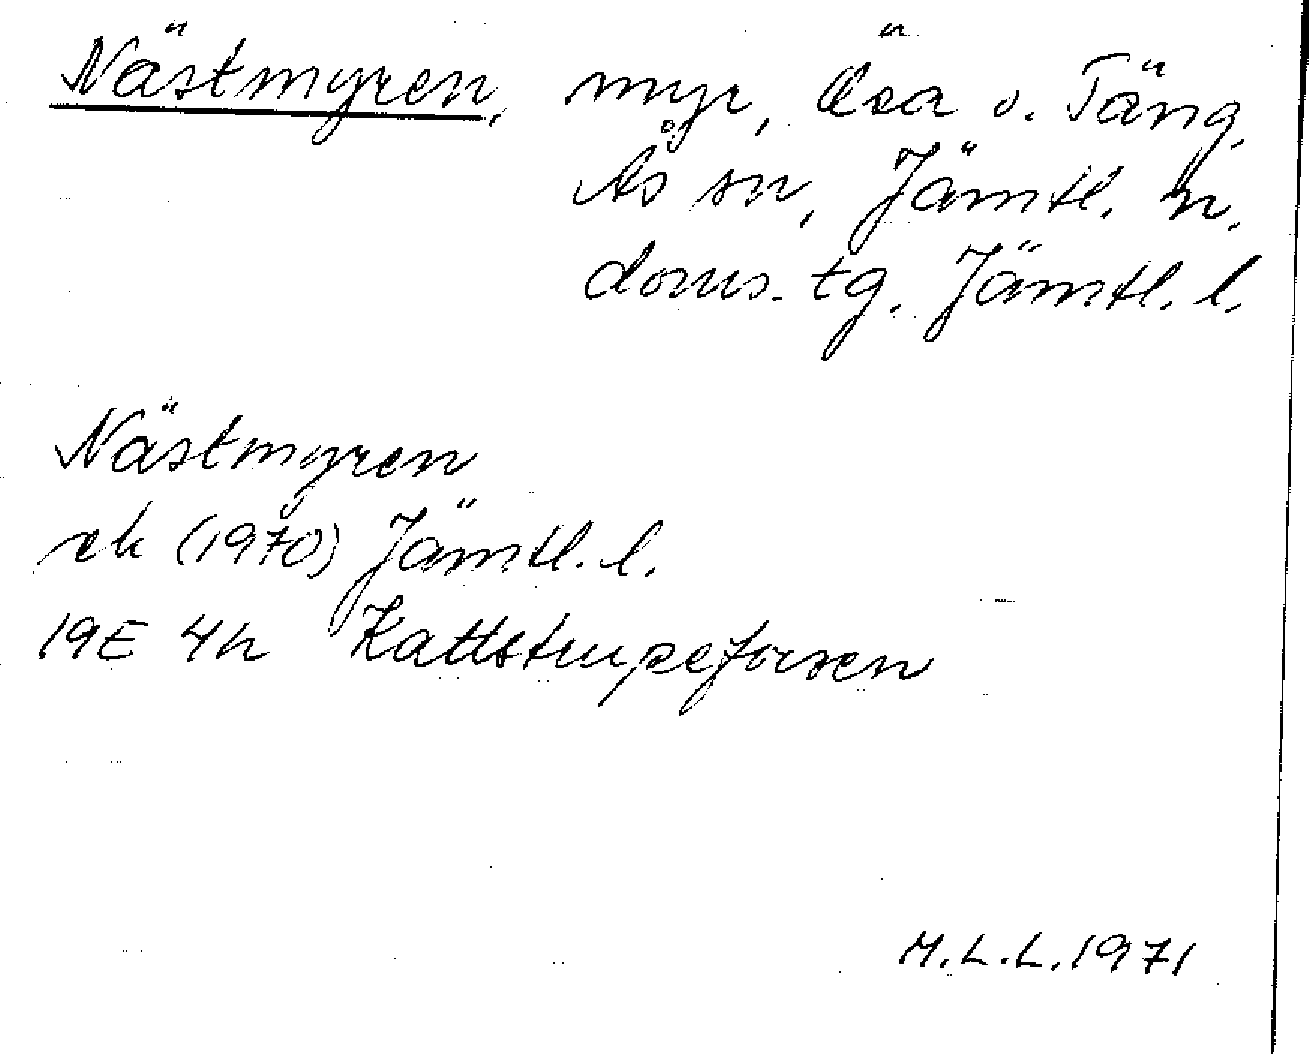 Nästmyren, myr, Ösa o. Täng,
Ås sn, Jämtl. n.
doms. tg. Jämtl. l.
Nästmyren
ek (1970) Jämtl. l.
19E 4h Kattstrupeforsen
M.L.L. 1971